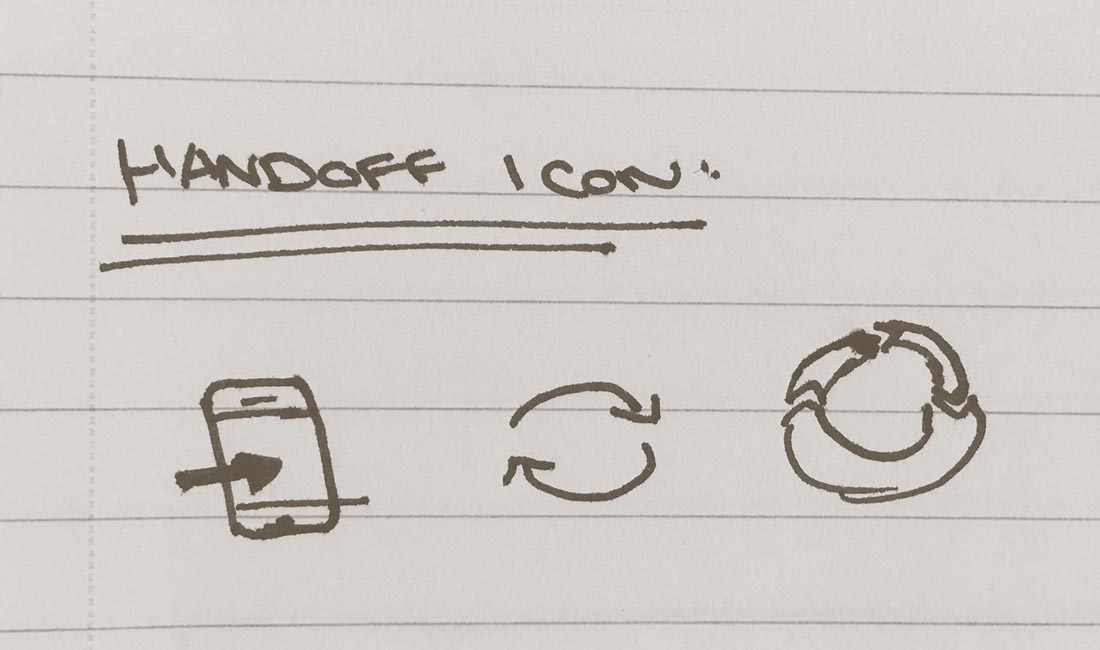 HANDOFF ICON: